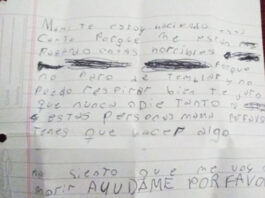 Mami te estoy haciendo
carta porque me están
pasando cosas horribles
porque
no paro de temblar y no
puedo respirar bien te juro
que nunca odie tanto a
estas personas mama porfavor
tenes que hacer algo
no siento que me voy a
morir AYUDAME PORFAVO